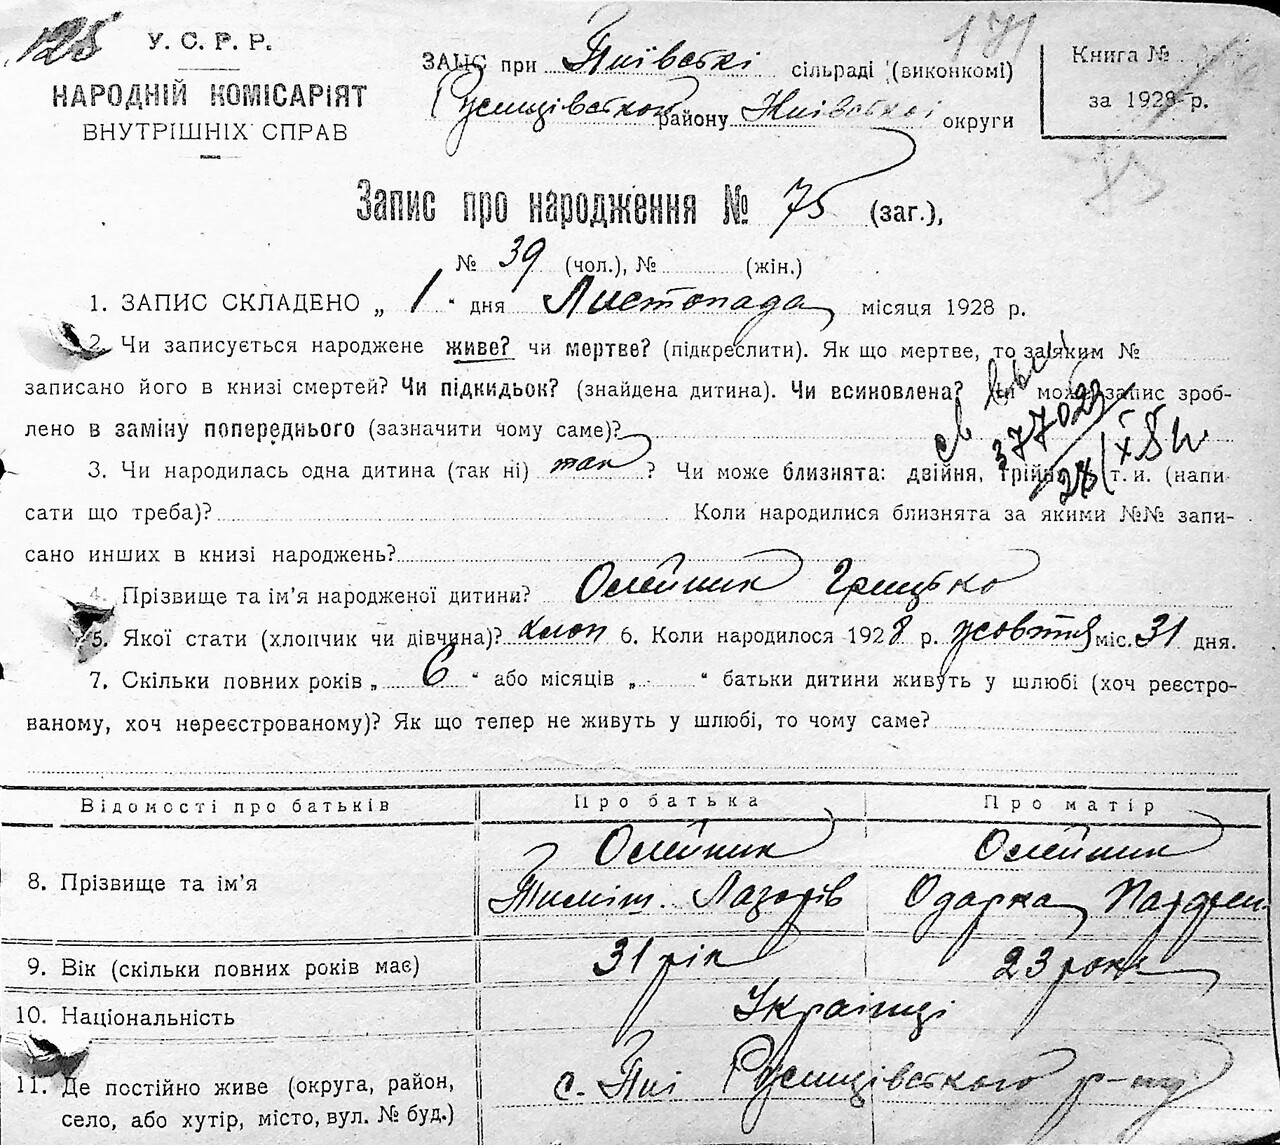 125
У. С. Р. Р.
НАРОДНІЙ КОМІСАРІЯТ
ВНУТРІШНІХ СПРАВ
171
ЗАПИС при Пиївській сільраді (виконкомі)
району Київської округи
Книга №
за 1928 р.
Запис про народження № 75 (заг.),
№ 39 (чол.), № (жін.)
1. ЗАПИС СКЛАДЕНО „ 1 “ дня Листопада місяця 1928 р.
2. Чи записується народжене живе? чи мертве? (підкреслити). Як що мертве, то за яким №
записано його в книзі смертей? Чи підкидьок? (знайдена дитина). Чи всиновлена? Чи може запис зроб-
лено в заміну попереднього (зазначити чому саме)?
377023
3. Чи народилась одна дитина (так ні) так ? Чи може близнята: двійня, трійня т. и. (напи-
сати що треба)? Коли народилися близнята за якими №№ запи-
сано инших в книзі народжень?
4. Прізвище та ім’я народженої дитини? Олейник Грицько
5. Якої стати (хлопчик чи дівчина)? хлоп 6. Коли народилося 1928 р. жовтня міс. 31 дня.
7. Скільки повних років „ 6 “ або місяців „ “ батьки дитини живуть у шлюбі (хоч реєстро-
ваному, хоч нереєстрованому)? Як що тепер не живуть у шлюбі, то чому саме?
Відомості про батьків Про батька Про матір
8. Прізвище та ім’я Олейник Тиміш. Лазорів Олейник Одарка Парфен.
9. Вік (скільки повних років має) 31 рік 23 роки
10. Національність Українці
11. Де постійно живе (округа, район, с. Пиї р-ну
село, або хутір, місто, вул. № буд.)